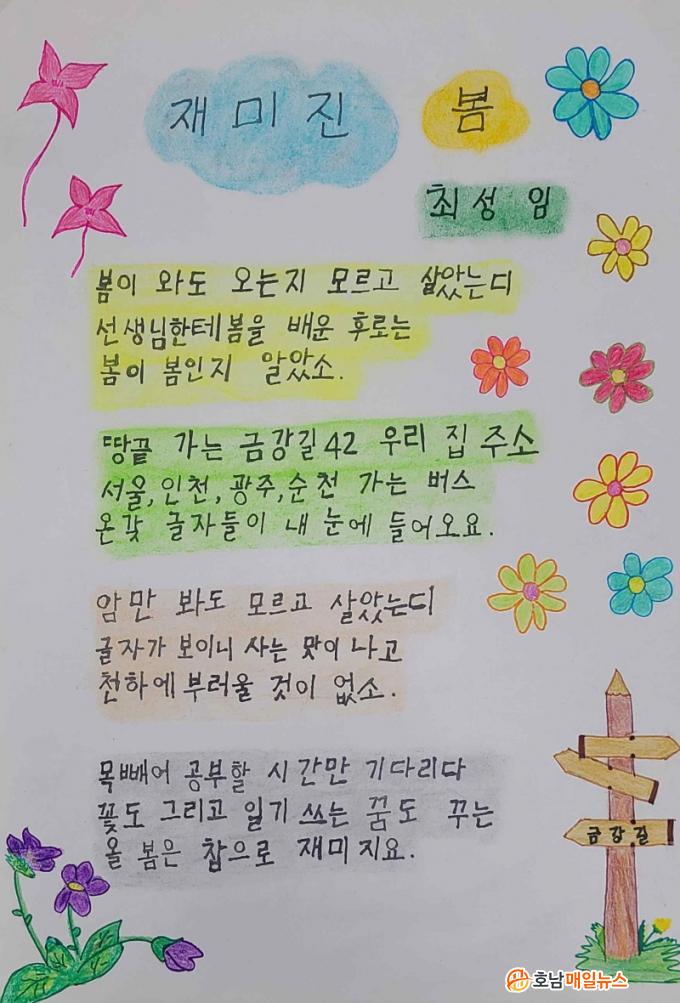 재미진 봄
최성임
봄이 와도 오는지 모르고 살았는디
선생님한테 봄을 배운 후로는
봄이 봄인지 알았소.
땅끝 가는 금강길42 우리 집 주소
서울, 인천, 광주, 순천 가는 버스
온갖 글자들이 내 눈에 들어오요.
암만 봐도 모르고 살았는디
글자가 보이니 사는 맛이 나고
천하에 부러울 것이 없소.
목빼어 공부할 시간만 기다리다
꽃도 그리고 일기 쓰는 꿈도 꾸는
올 봄은 참으로 재미지요.
금강길
호남매일뉴스